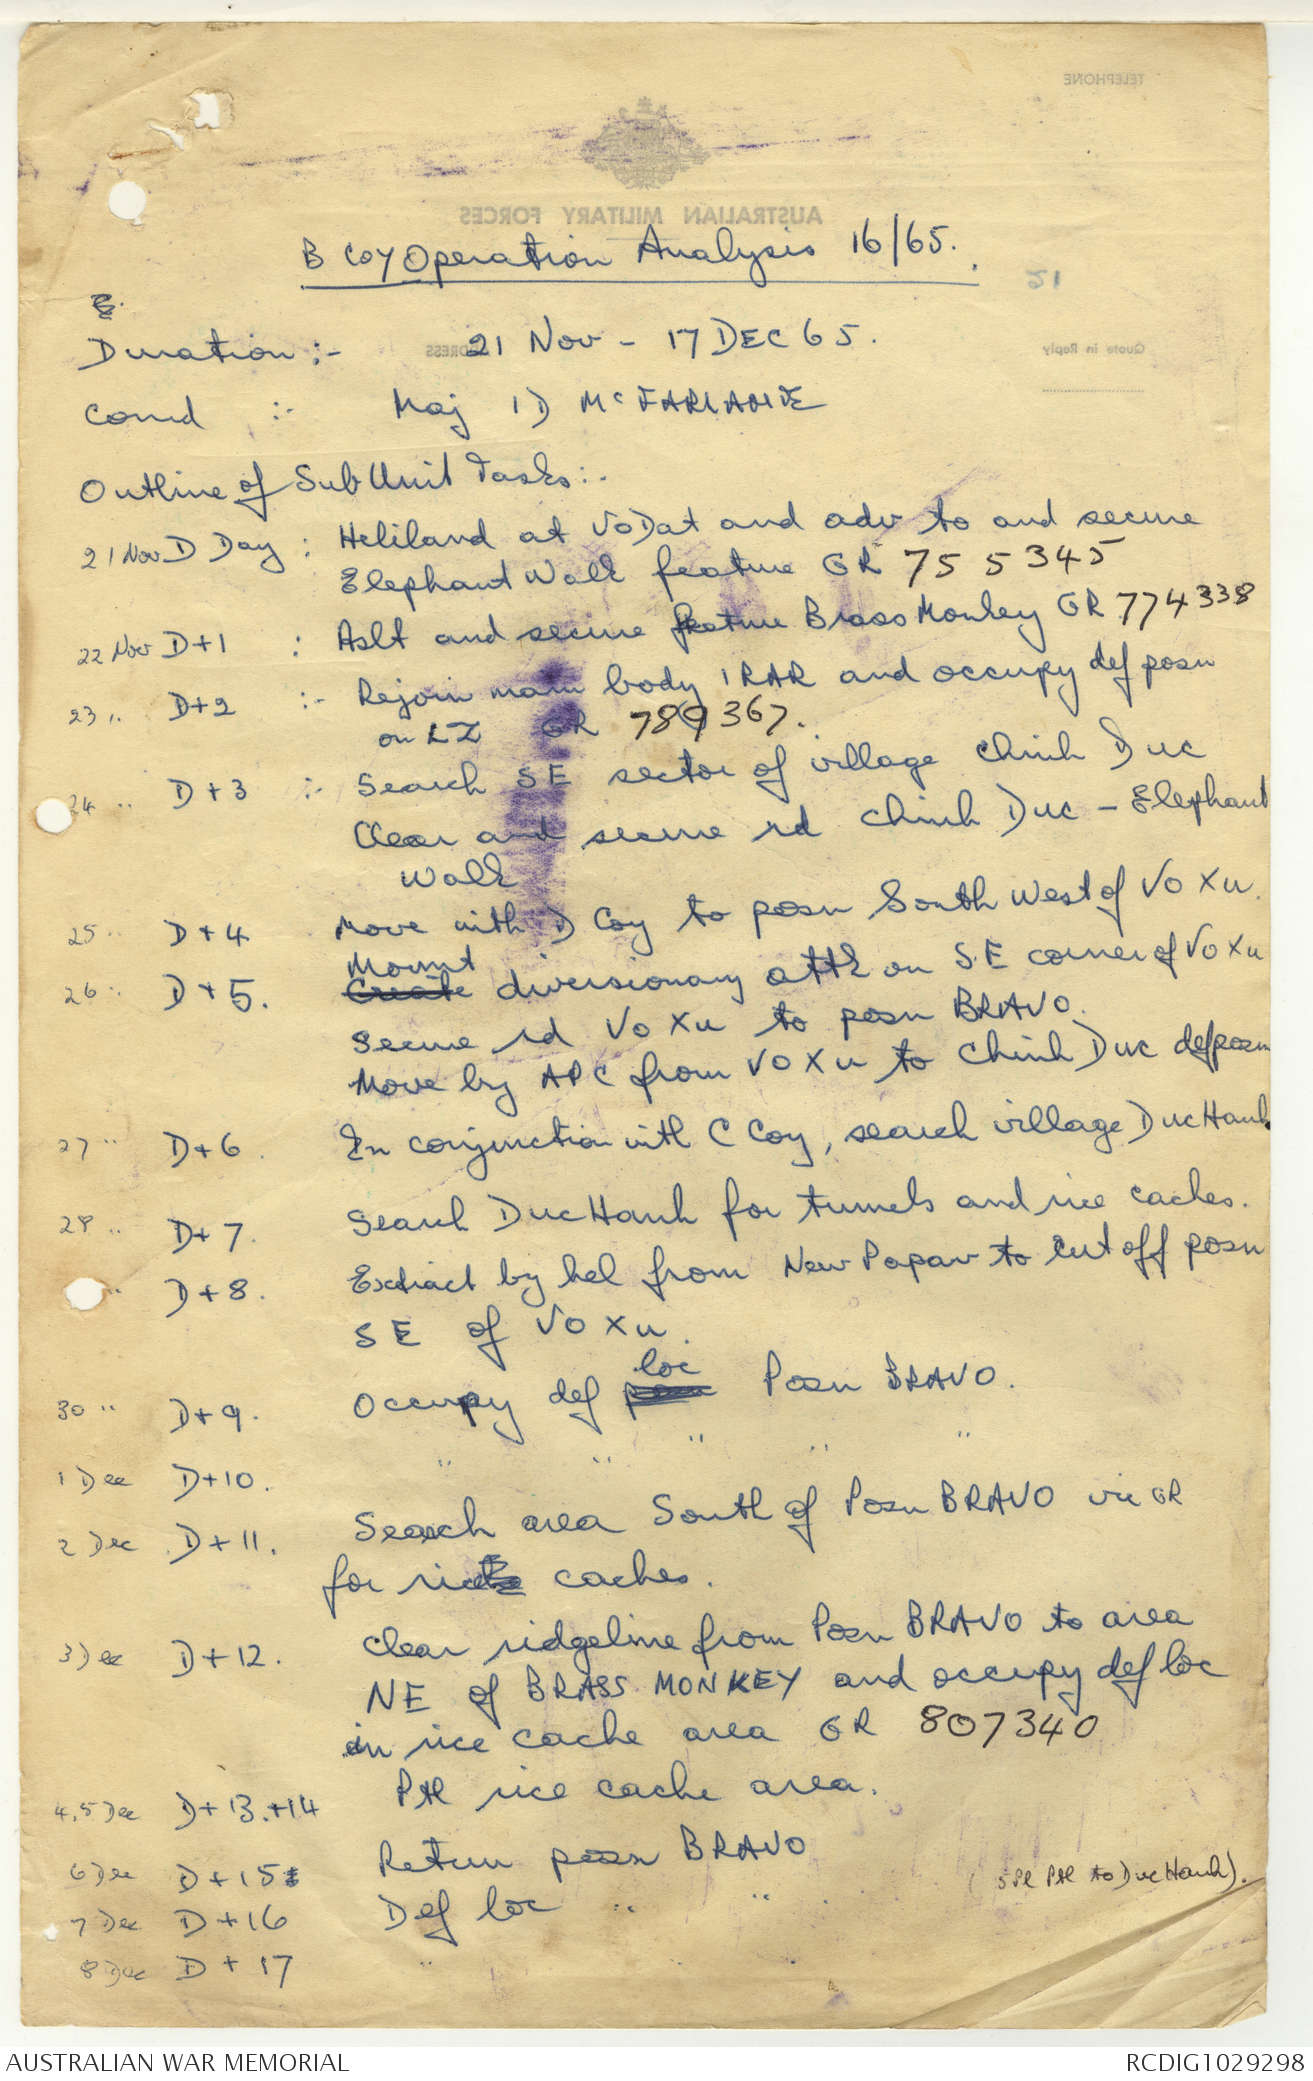 B Coy Operation Analysis 16/65.
Duration :- 21 Nov - 17 DEC 65.
Comd :- Maj ID McFARLANE
Outline of Sub Unit Tasks:-
21 Nov D Day : Heliland at VoDat and adv to and secure
Elephant Walk feature GR 755345
22 Nov D+1 : Aslt and secure feature Brass Monkey GR 774338
23 " D+2 :- Rejoin main body 1RAR and occupy def posn
on LZ GR 789367.
24 " D+3 :- Search SE sector of village Chinh Duc
Clear and secure rd Chinh Duc - Elephant
Walk
25 " D+4 Move with D Coy to posn South West of Vo Xu.
Mount
26 " D+5. Create diversionary attk on SE corner of Vo Xu
Secure rd Vo Xu to posn BRAVO.
Move by APC from VO Xu to Chinh Duc def posn
27 " D+6. In conjunction with C Coy, search village Duc Hanh
28 " D+7. Search Duc Hanh for tunnels and rice caches.
" D+8. Extract by hel from New Papav to cut off posn
SE of VO Xu.
loc
30 " D+9. Occupy def posn Posn BRAVO.
1 Dec D+10. " " " " "
2 Dec D+11. Search area South of Posn BRAVO vic GR
for rice caches.
3 Dec D+12. Clear ridgeline from Posn BRAVO to area
NE of BRASS MONKEY and occupy def loc
in rice cache area GR 807340
4,5 Dec D+13.+14 Ptl rice cache area.
6 Dec D+15 Return posn BRAVO
(5 Pl Ptl to Duc Hanh).
7 Dec D+16 Def loc " "
8 Dec D+17 "
TELEPHONE
AUSTRALIAN MILITARY FORCES
ADDRESS
Quote in Reply
AUSTRALIAN WAR MEMORIAL
RCDIG1029298